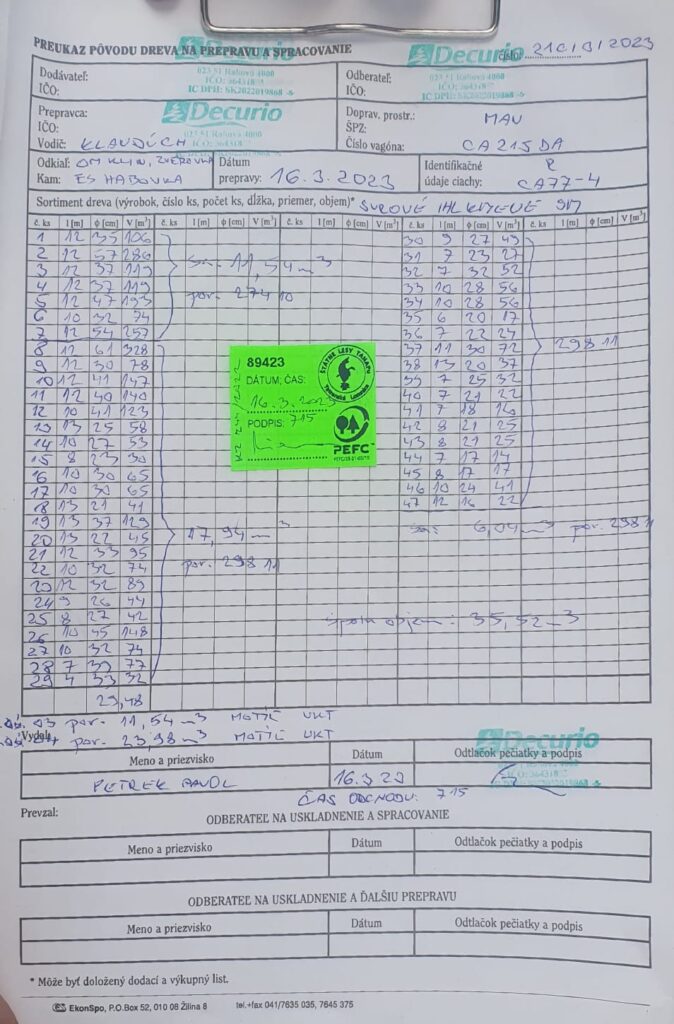 PREUKAZ PÔVODU DREVA NA PREPRAVU A SPRACOVANIE
Decurio
Decurio
číslo 210/B/2023
Dodávateľ:
IČO:
023 51 Raková 4000
IC DPH: SK2022019868
Odberateľ:
IČO:
Prepravca:
IČO:
Vodič: KLAVDÚCH
Decurio
023 51 Raková 4000
Doprav. prostr.: MAN
ŠPZ:
Číslo vagóna: CA215DA
Odkiaľ: OM KLIN, ZVEROVKA
Kam: ES HABOVKA
Dátum
prepravy: 16.3.2023
Identifikačné
údaje ciachy: CA77-4
Sortiment dreva (výrobok, číslo ks, počet ks, dĺžka, priemer, objem)* SUROVÉ IHL KMEŇE SM
č. ks l [m] ϕ [cm] V [m³] č. ks l [m] ϕ [cm] V [m³] č. ks l [m] ϕ [cm] V [m³] č. ks l [m] ϕ [cm] V [m³]
1 12 35 106 30 9 27 49
2 12 57 286 31 7 23 27
3 12 37 119 11,54 m³ 32 7 32 52
4 12 37 119 33 10 28 56
5 12 47 193 por. 274 10 34 10 28 56
6 10 32 74 35 6 20 17
7 12 54 257 36 7 22 24
8 12 61 328 37 11 30 72 298 11
9 12 30 78 38 13 20 37
10 12 41 147 39 7 25 32
11 12 40 140 40 7 21 22
12 10 41 123 41 7 18 16
13 13 25 58 42 8 21 25
14 10 27 53 43 8 21 25
15 8 23 30 44 7 17 14
16 10 30 65 45 8 17 17
17 10 30 65 46 10 24 41
18 13 21 41 47 12 16 22
19 13 37 129
20 13 22 45 17,94 m³ 6,04 m³ por. 298 11
21 12 33 95
22 10 32 74 por. 298 11
23 12 32 89
24 9 26 44
25 8 27 42 spolu objem: 35,52 m³
26 10 45 148
27 10 32 74
28 7 39 77
29 4 33 32
29,48
89423
DÁTUM, ČAS:
16.3.2023
PODPIS: 715
ŠTÁTNE LESY TANAPU
Tatranská Lomnica
PEFC
03 por. 11,54 m³ MOTÍĽ UKT
por. 23,98 m³ MOTÍĽ UKT
Vydal:
Meno a priezvisko Dátum Odtlačok pečiatky a podpis
Decurio
PETREK PAVOL 16.3.23
ČAS ODCHODU: 715
Prevzal:
ODBERATEĽ NA USKLADNENIE A SPRACOVANIE
Meno a priezvisko Dátum Odtlačok pečiatky a podpis
ODBERATEĽ NA USKLADNENIE A ĎALŠIU PREPRAVU
Meno a priezvisko Dátum Odtlačok pečiatky a podpis
* Môže byť doložený dodací a výkupný list.
EkonSpo, P.O.Box 52, 010 08 Žilina 8 tel.+fax 041/7635 035, 7645 375